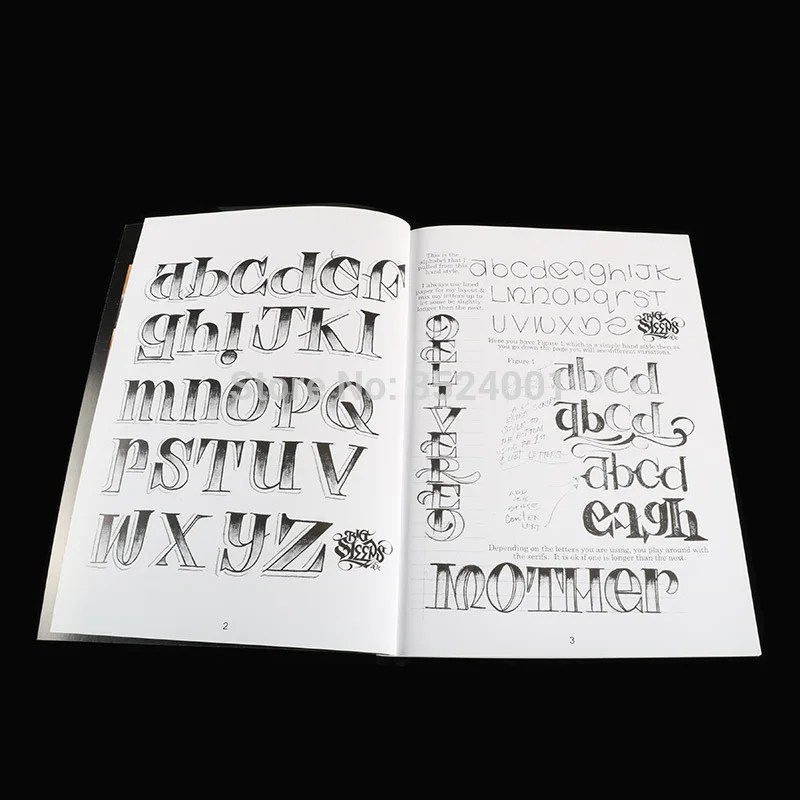 abcdeF
ghiJKl
mnopQ
rsTUV
WXYZ
BIG
SLEEPS
2
This is the
alphabet that I
pulled from this
hand style.
I always use lined
paper for my layout &
mix my letters up to
let some be slightly
longer than the next.
abcdeaghiJK
LMnopqrsT
UVWX
BIG
SLEEPS
Here you have Figure 1 which is a simple hand style then as
you go down the page you will see different variations.
Figure 1
DELIVERED
abcd
abcd
STYLE TO
THE BOTTOM
abcd
AND
eagh
Depending on the letters you are using, you play around with
the serifs. It is ok if one is longer than the next.
MOTHer
3
Store No: 3524001